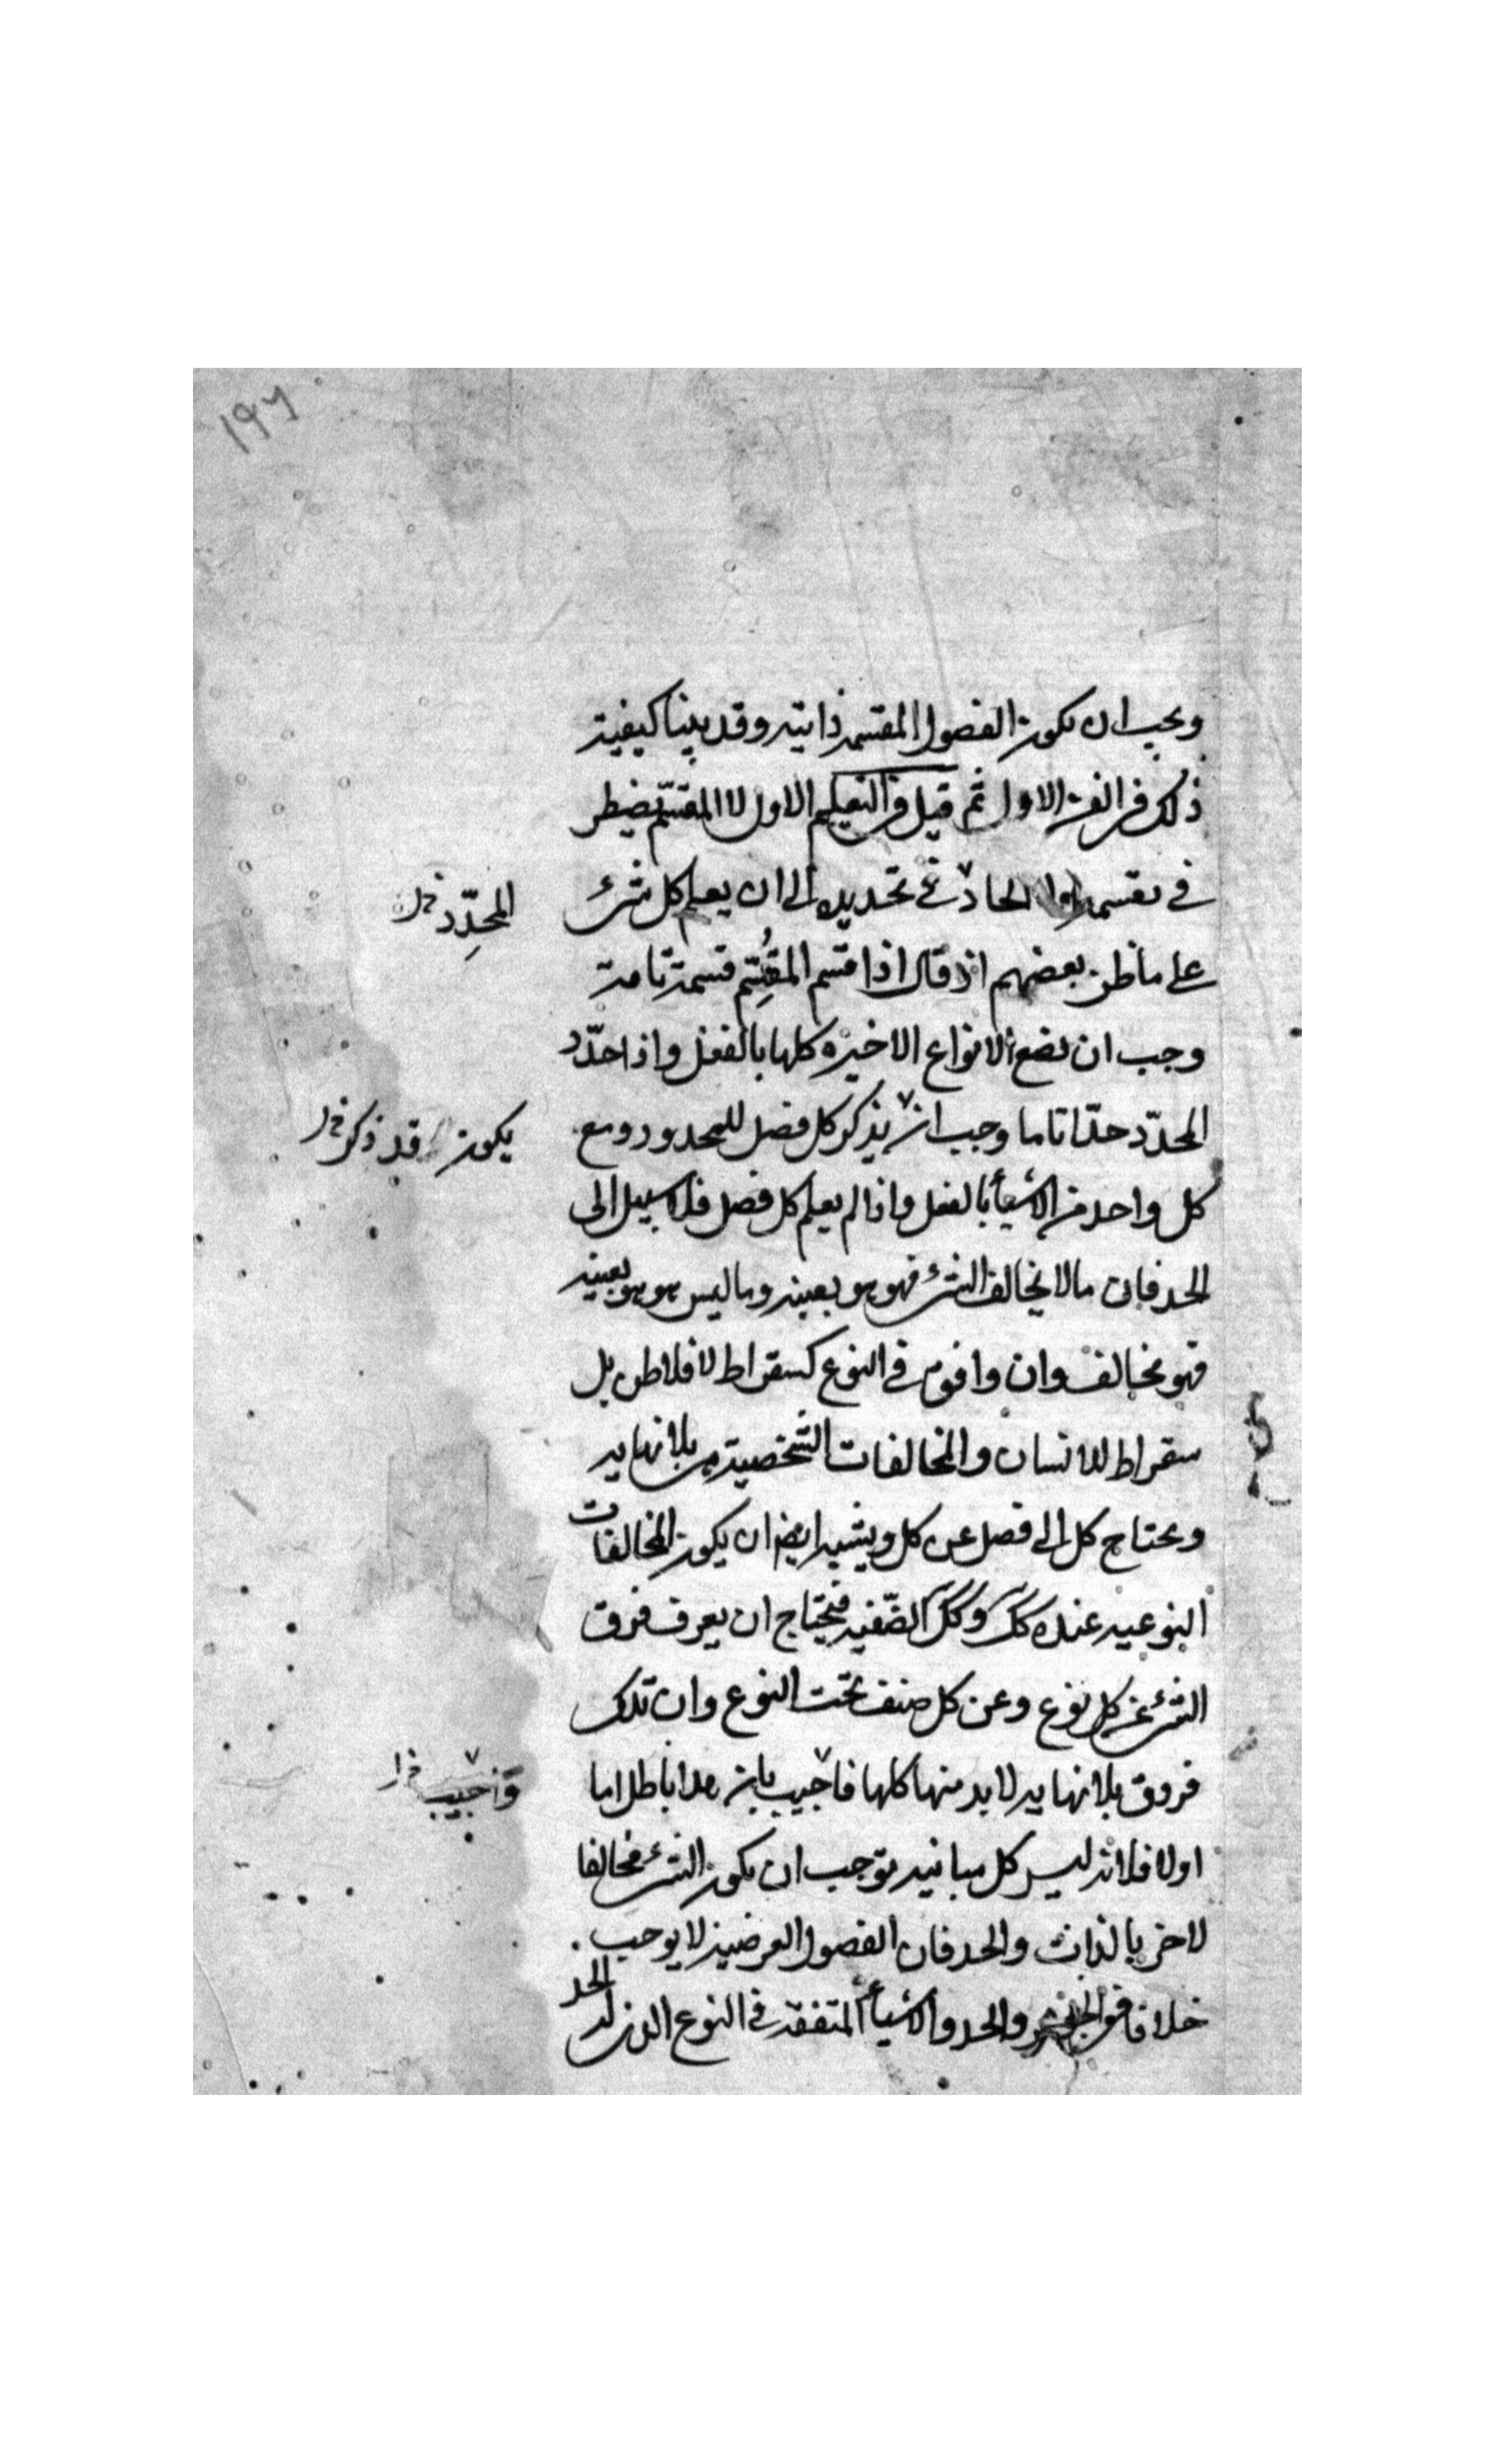 ١٩٦
ويجب ان يكون الفصول المقسمه ذاتيه وقد بينا كيفية
ذلك فى الفن الاول ثم قيل فى التعليم الاول لا المقسّم يضطر
فى تقسمه ولا الحاد فى تحديده الى ان يعلم كل شئ
المحدّد
على ما ظن بعضهم اذ قال اذا قسم المقسِّم قسمة تامة
وجب ان تضع الانواع الاخيره كلها بالفعل واذا حدّد
المحدّد حدّا تاما وجب ان يذكر كل فصل للمحدود ومع
يكون قد ذكر
كل واحد من الاشيأ بالفعل واذا لم يعلم كل فصل فلا سبيل الى
الحد فان ما لا يخالف الشئ فهو هو بعينه وما ليس هو هو بعينه
فهو مخالف وان وافق فى النوع كسقراط لافلاطن بل
سقراط للانسان والمخالفات الشخصية بلا نهايه
ويحتاج كل الى فصل عن كل ويشبه ايضا ان يكون المخالفات
النوعيه عنده كك وكك الصّنفيه فيحتاج ان يعرف فرق
الشئ عن كل نوع وعن كل صنف تحت النوع وان تلك
فروق بلا نهايه لا بد منها كلها فاجيب بان هذا باطل اما
واجيب
اولا فلانه ليس كل مباينه توجب ان يكون الشئ مخالفا
لاخر بالذات والحد فان الفصول العرضيه لا يوجب
خلافا فى الجوهر والحد والاشيأ المتفقه فى النوع الذى له
الحد